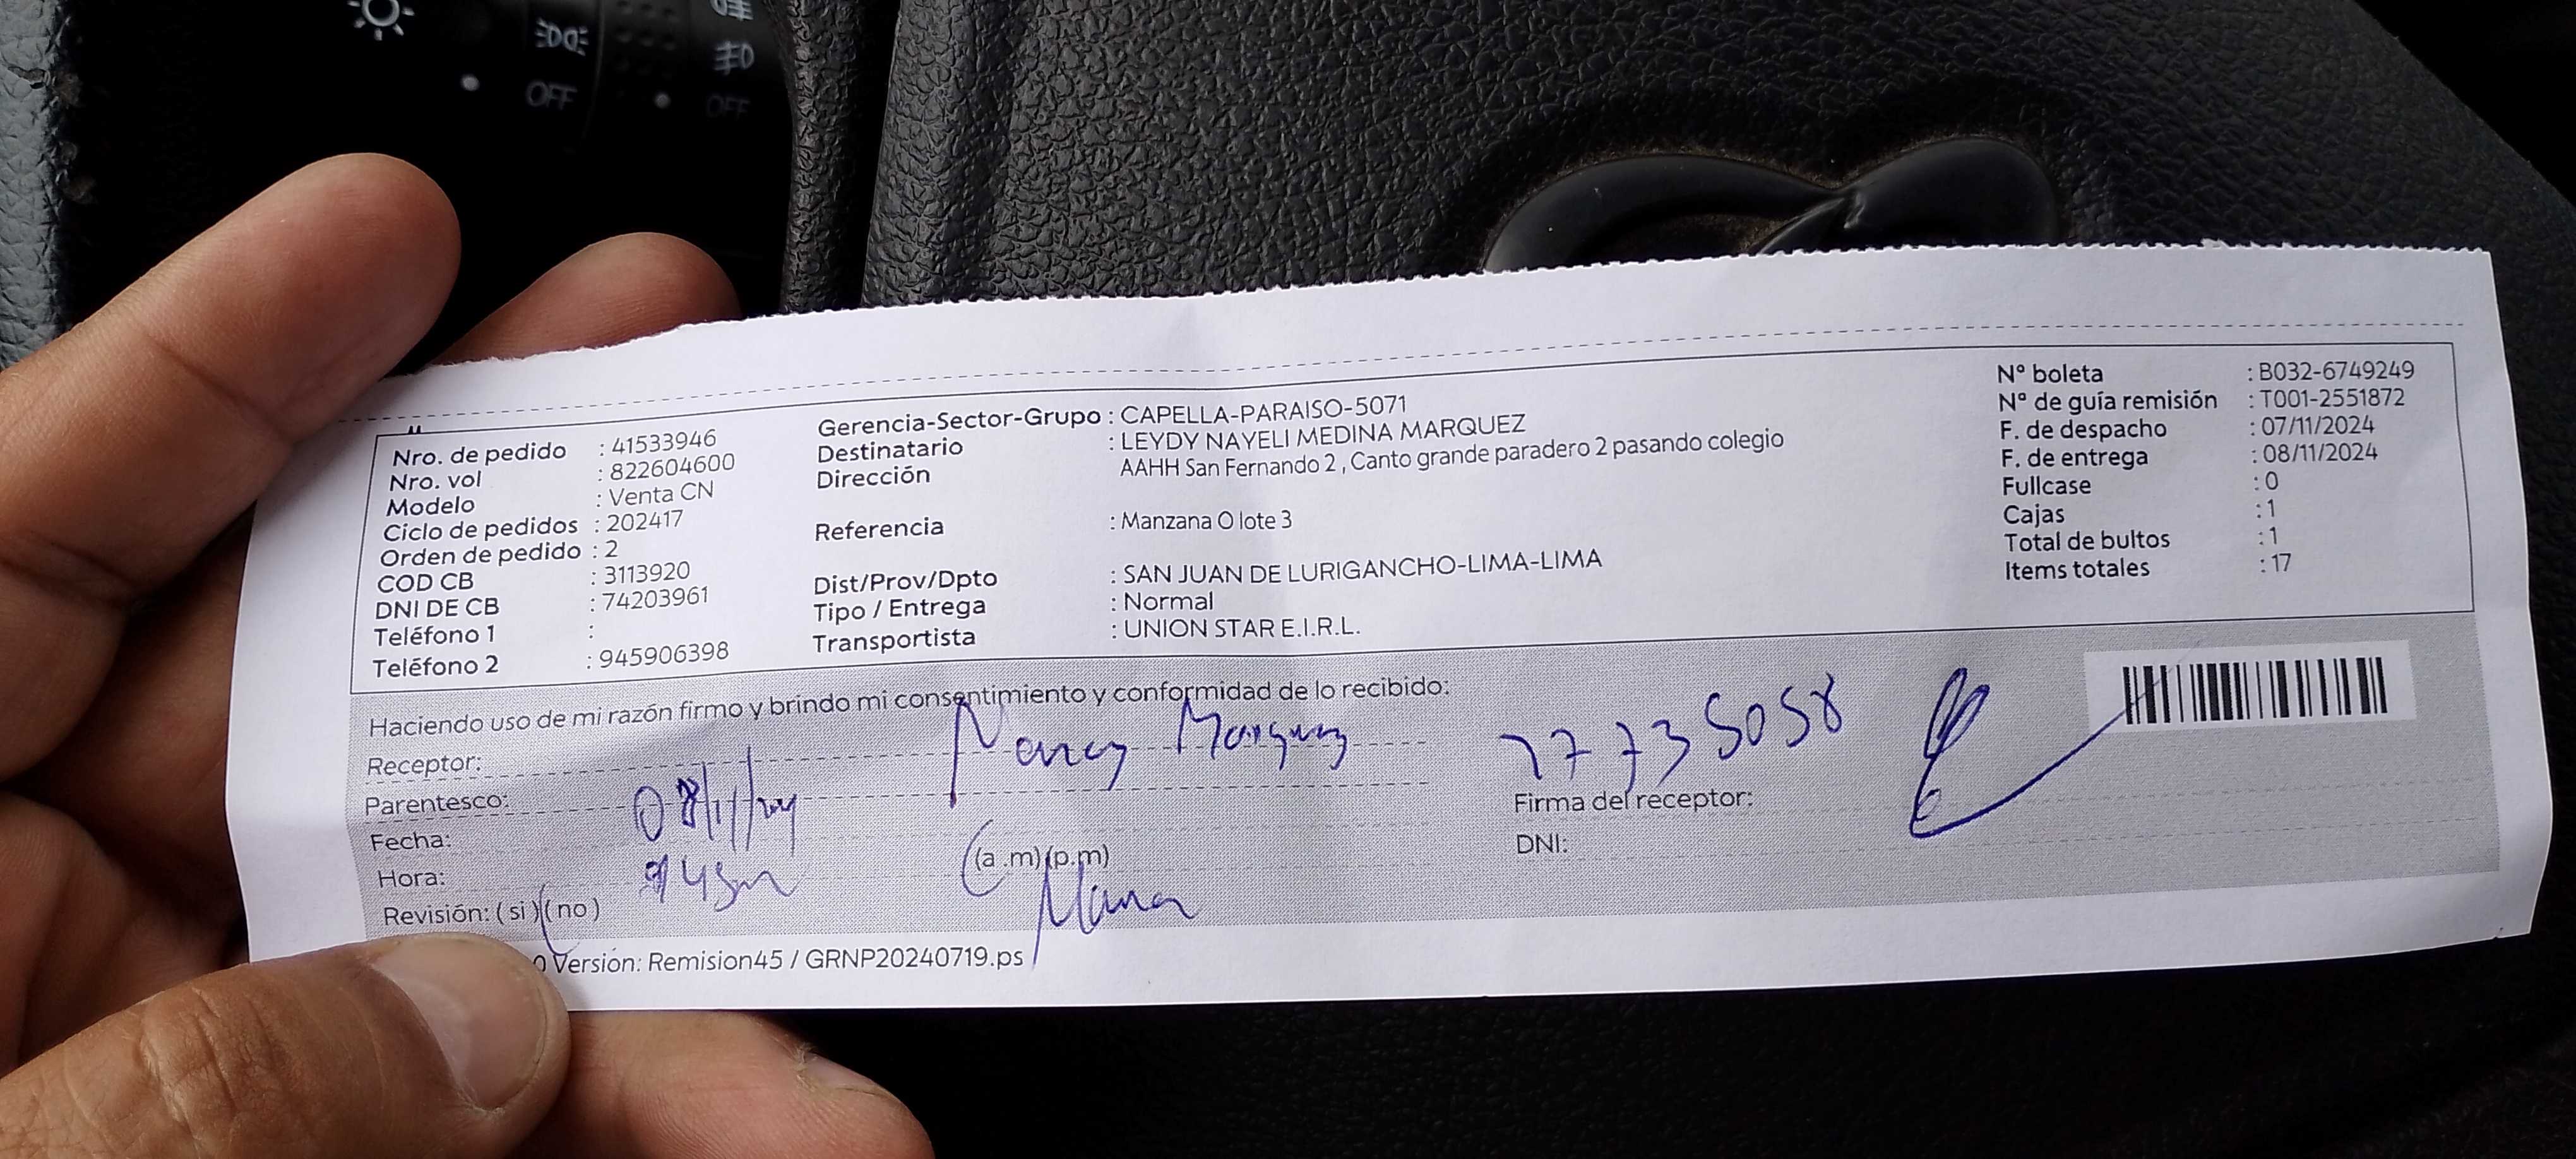 OFF
OFF
Nro. de pedido : 41533946
Nro. vol : 822604600
Modelo : Venta CN
Ciclo de pedidos : 202417
Orden de pedido : 2
COD CB : 3113920
DNI DE CB : 74203961
Teléfono 1 :
Teléfono 2 : 945906398
Gerencia-Sector-Grupo : CAPELLA-PARAISO-5071
Destinatario : LEYDY NAYELI MEDINA MARQUEZ
Dirección AAHH San Fernando 2 , Canto grande paradero 2 pasando colegio
Referencia : Manzana O lote 3
Dist/Prov/Dpto : SAN JUAN DE LURIGANCHO-LIMA-LIMA
Tipo / Entrega : Normal
Transportista : UNION STAR E.I.R.L.
Nº boleta : B032-6749249
Nº de guía remisión : T001-2551872
F. de despacho : 07/11/2024
F. de entrega : 08/11/2024
Fullcase : 0
Cajas : 1
Total de bultos : 1
Items totales : 17
Haciendo uso de mi razón firmo y brindo mi consentimiento y conformidad de lo recibido:
Receptor: Nancy Marquez
Parentesco:
Fecha: 08/11/
Hora: (a .m) (p.m)
Revisión: ( si ) ( no )
Firma del receptor:
DNI:
0 Versión: Remision45 / GRNP20240719.ps